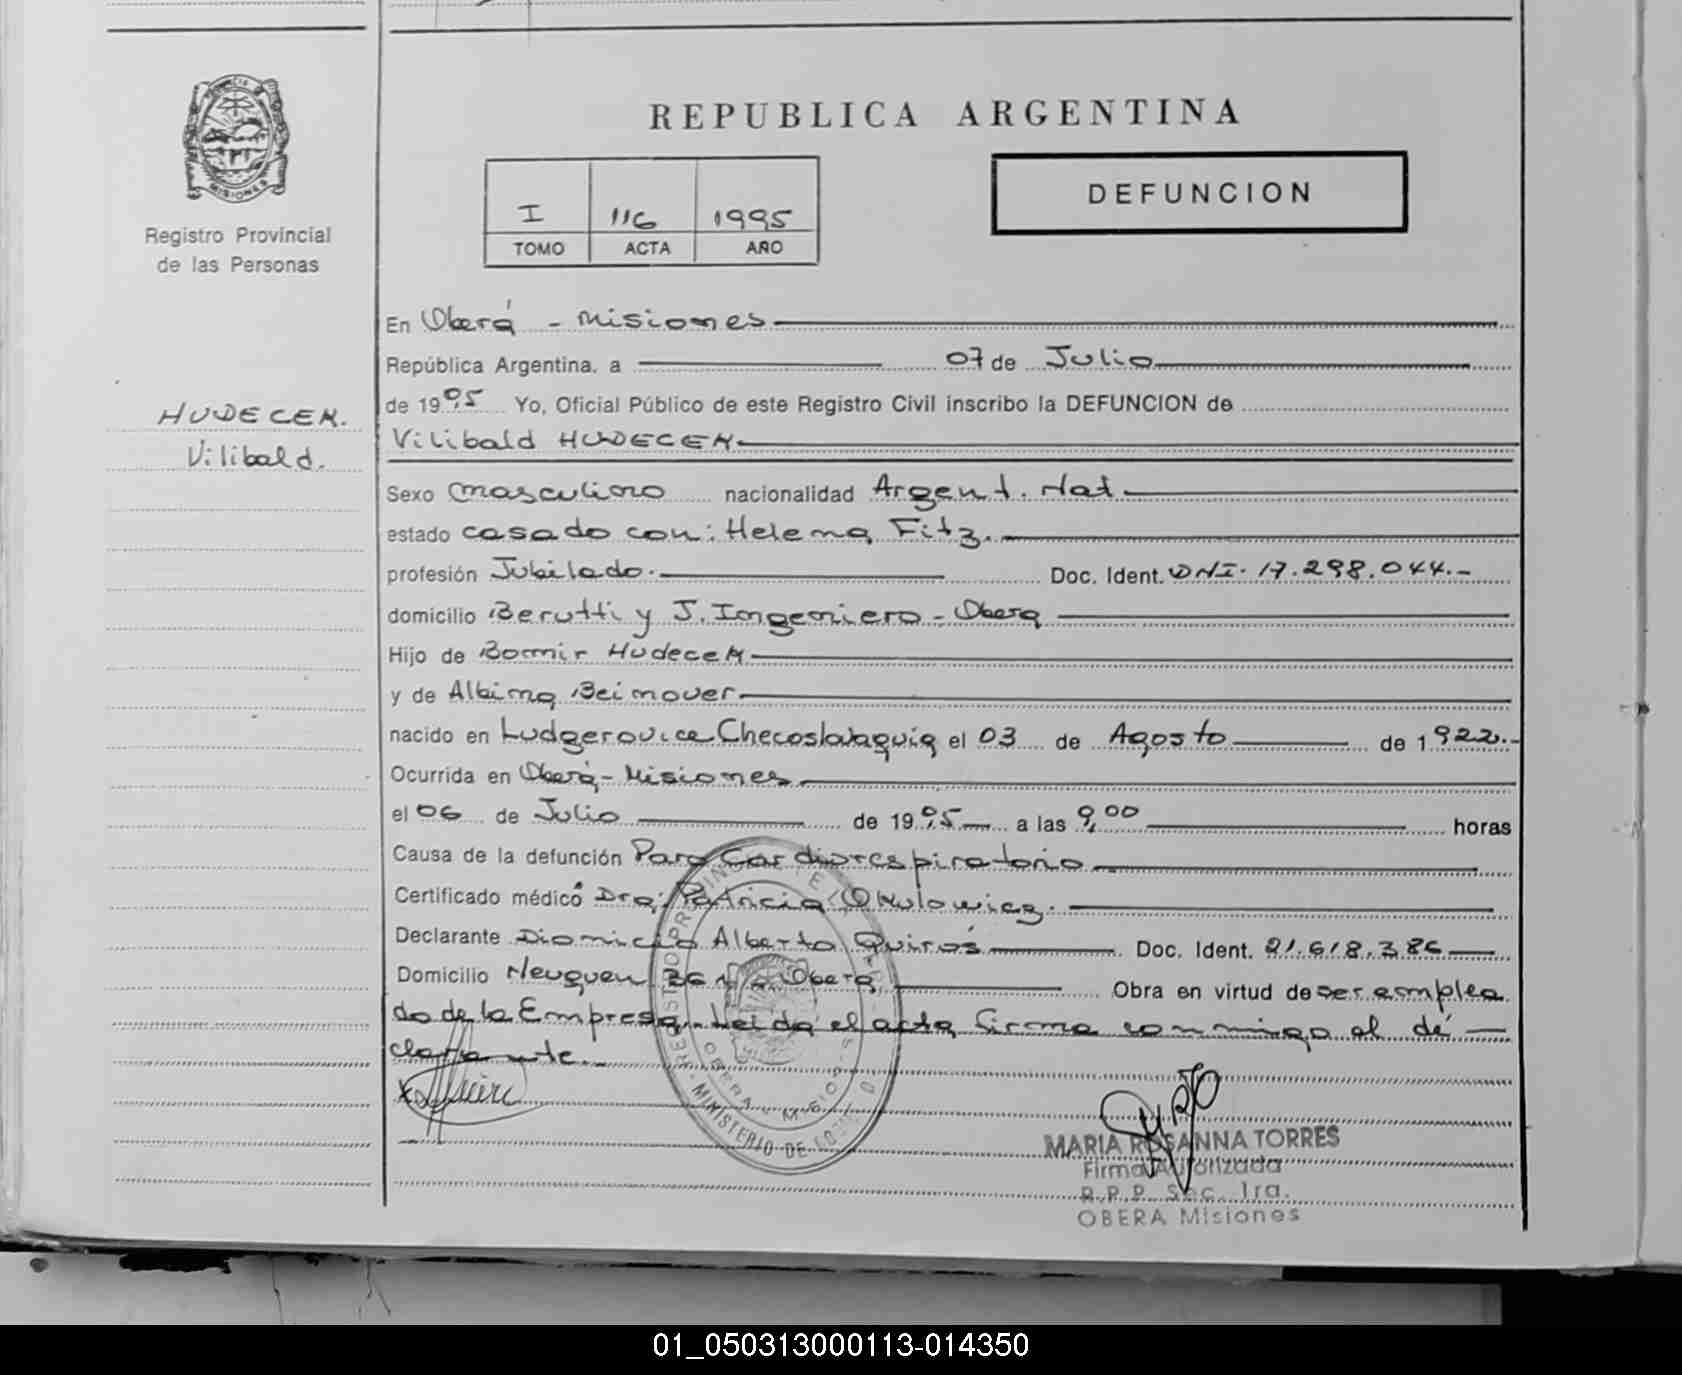 REPUBLICA ARGENTINA
I 116 1995
TOMO ACTA AÑO
DEFUNCION
MISIONES
Registro Provincial
de las Personas
HUDECEK.
Vilibald.
En Oberá - Misiones
República Argentina, a 07 de Julio
de 1995 Yo, Oficial Público de este Registro Civil inscribo la DEFUNCION de
Vilibald HUDECEK
Sexo masculino nacionalidad Argent. Nat.
estado casado con: Helena Fitz.
profesión Jubilado. Doc. Ident. DNI. 17.298.044.-
domicilio Berutti y J. Ingeniero - Obera
Hijo de Bomir Hudecek
y de Albina Beinover
nacido en Ludgerovice Checoslovaquia el 03 de Agosto de 1922.-
Ocurrida en Oberá - Misiones
el 06 de Julio de 1995 a las 9,00 horas
Causa de la defunción Paro Cardiorespiratorio
Certificado médico Dra: Patricia Okulowicz.
Declarante Dionicio Alberto Quirós Doc. Ident. 21.618.386
Domicilio Neuquen Obera Obra en virtud de ser emplea
do de la Empresa. Leida el acta firma conmigo el de
clarante.-
MINISTERIO DE
OBERA - MISIONES
MARIA ROSANNA TORRES
Firma Autorizada
R.P.P. Sec. 1ra.
OBERA Misiones
01_050313000113-014350